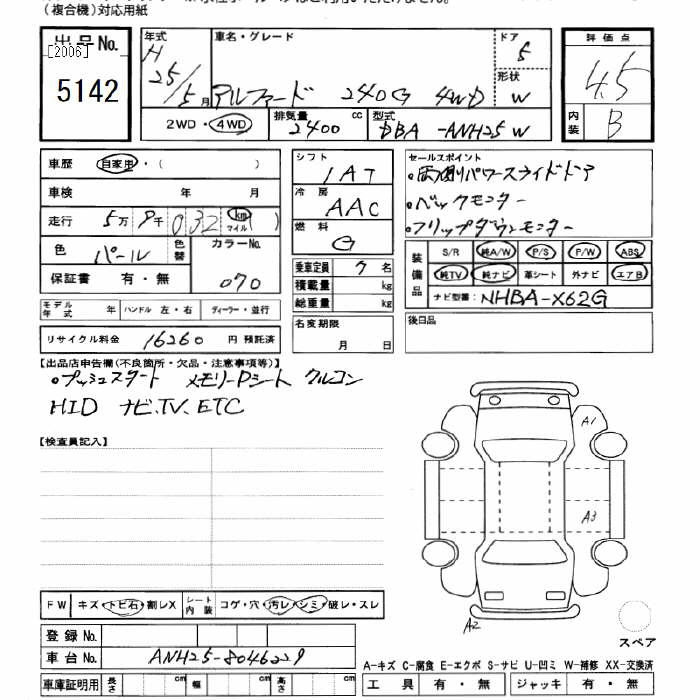 (複合機)対応用紙
出品No.
[2006]
5142
年式
H 25/5月
車名・グレード
アルファード 240G 4WD
ドア
5
形状
W
評価点
4.5
内装
B
2WD・4WD
排気量
2400 cc
型式
DBA-ANH25W
車歴
自家用・( )
車検 年 月
走行 5万 8千 032 km マイル ( )
色 パール 色替 カラーNo.
070
保証書 有・無
モデル年式 年 ハンドル 左・右 ディーラー・並行
リサイクル料金 16260 円 預託済
シフト
IAT
冷房
AAC
燃料
G
乗車定員 7 名
積載量 kg
総重量 kg
名変期限
月 日
セールスポイント
・両側パワースライドドア
・バックモニター
・フリップダウンモニター
装備品
S/R 純A/W P/S P/W ABS
純TV 純ナビ 革シート 外ナビ エアB
ナビ型番: NHBA-X62G
後日品
【出品店申告欄(不良箇所・欠品・注意事項等)】
・プッシュスタート メモリーPシート クルコン
HID ナビ、TV、ETC
【検査員記入】
A1
A3
A2
スペア
FW キズ・トビ石・割レX シート内装 コゲ・穴・汚レ・シミ・破レ・スレ
登録No.
車台No. ANH25-8046229
車庫証明用 長さ cm 幅 cm 高さ cm
A-キズ C-腐食 E-エクボ S-サビ U-凹ミ W-補修 XX-交換済
工具 有・無 ジャッキ 有・無